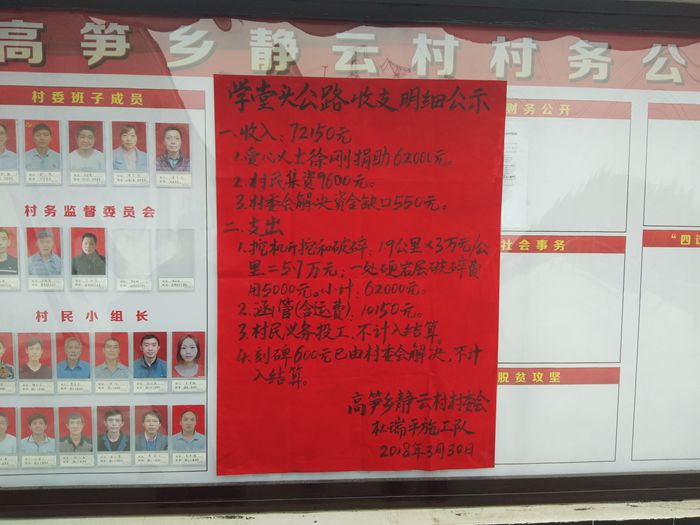 高笋乡静云村村务公
村委班子成员
村务监督委员会
村民小组长
学堂头公路收支明细公示
一.收入:72150元
1.爱心人士徐刚捐助62000元。
2.村民集资9600元。
3.村委会解决资金缺口550元。
二.支出
1.挖机开挖和破碎:19公里×3万元/公
里=5.7万元;一处硬岩层破碎费
用5000元。小计:62000元。
2.涵管(含运费):10150元。
3.村民义务投工,不计入结算。
4.刻碑600元已由村委会解决,不计
入结算。
高笋乡静云村村委会
杜瑞平施工队
2018年3月30日
财务公开
社会事务
脱贫攻坚
"四议